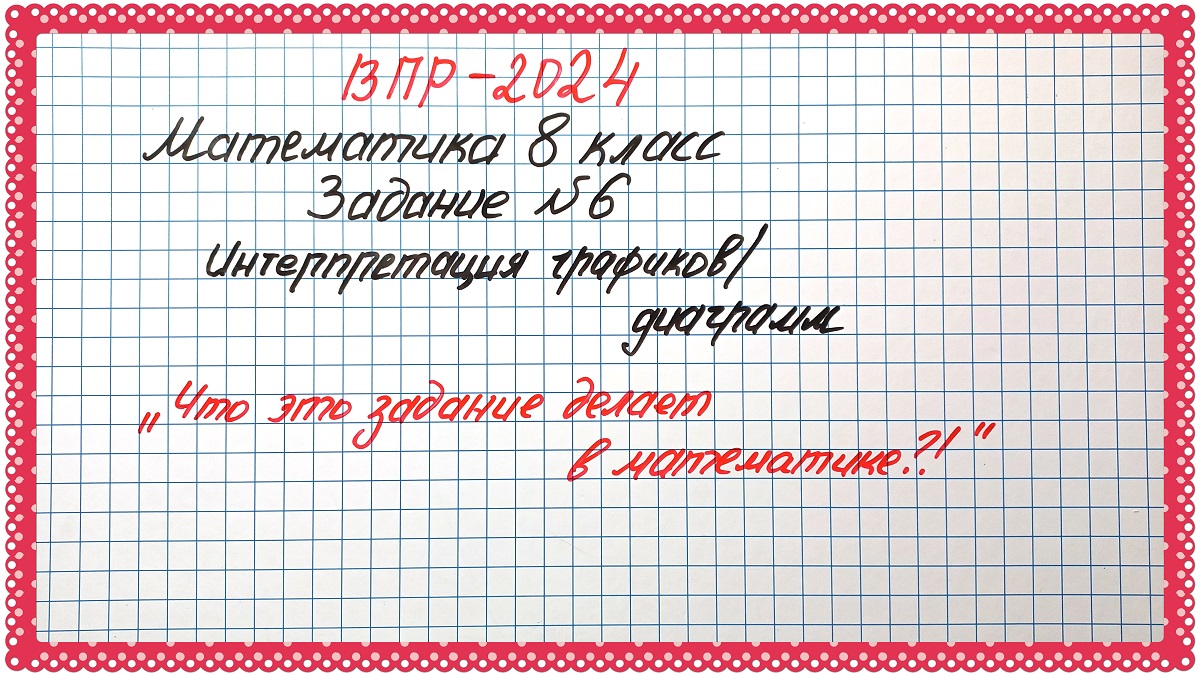 ВПР-2024
Математика 8 класс
Задание №6
Интерпретация графиков/
диаграмм
„Что это задание делает
в математике?!"